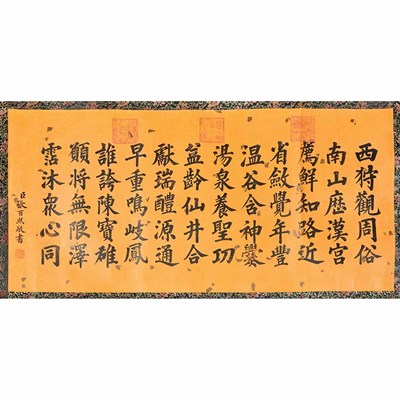 西狩觀周俗
南山歷漢宮
薦鮮知路近
省斂覺年豐
溫谷含神爨
湯泉養聖功
益齡仙井合
獻瑞醴源通
早重鳴岐鳳
誰誇陳寶雄
願將無限澤
霑沐衆心同
臣張百熙敬書